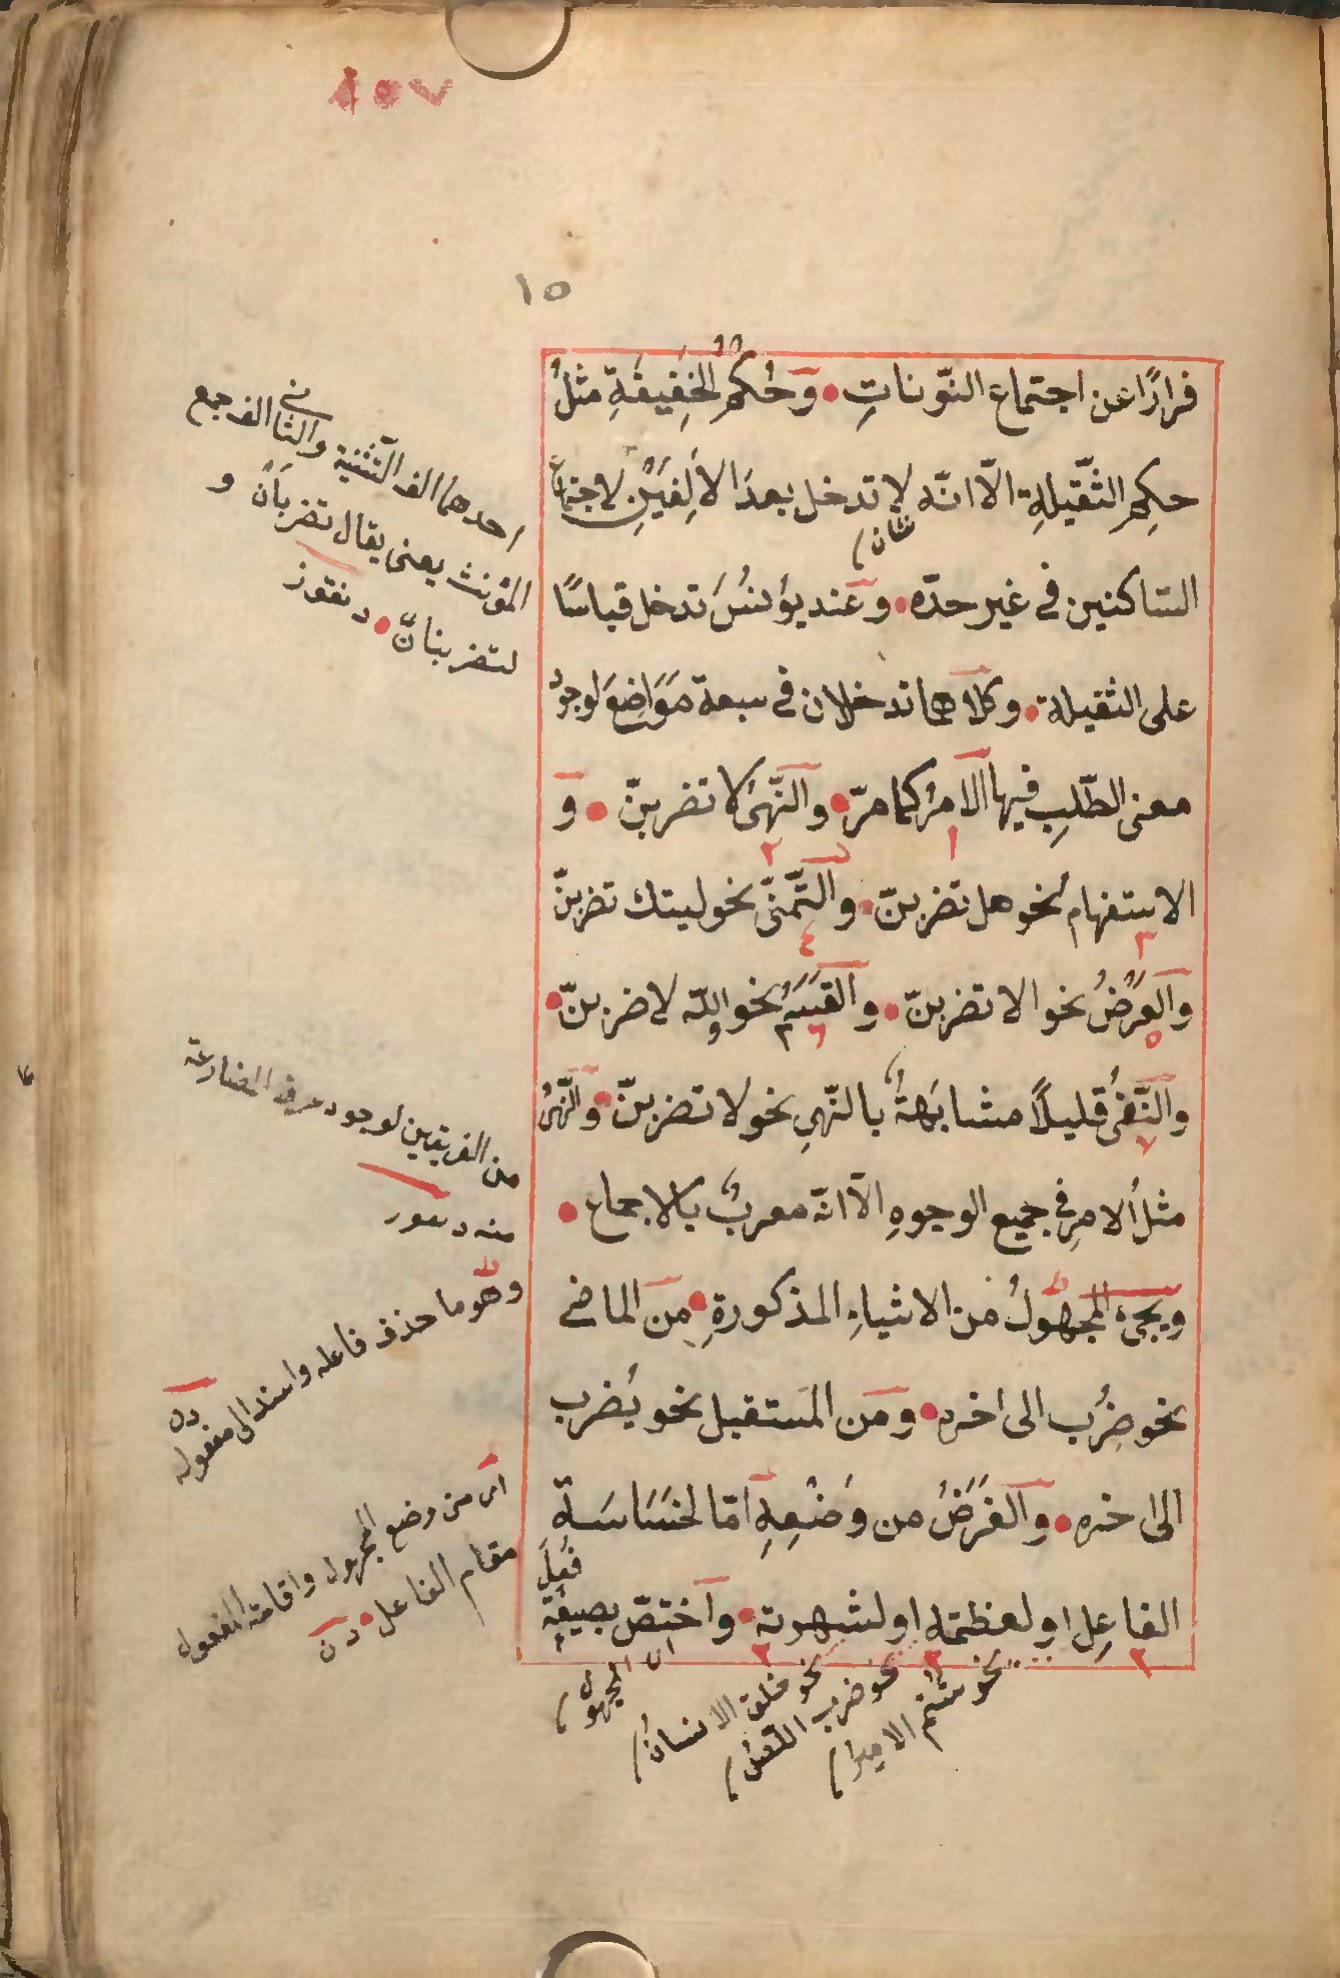 ٨٥٧
١٥
فرارًا عن اجتماع النّونات • وَحُكم الخَفِيفَةِ مثلُ
حكِم الثّقيلةِ الّا انّه لا تدخل بعدَ الألِفَينِ لاجتماع
السّاكنين في غير حدّه • وعند يونسُ تدخل قياسًا
على الثقيلة • وكلاهما تدخلان في سبعة مَوَاضِعَ لوجود
معنى الطّلبِ فيها الامرُ كما مرّ • والنّهىُ لا تضربنّ • و
الاستفهام نحو هل تضربنّ • والتّمنّى نحو ليتك تضربنّ
والعَرضُ نحو الا تضربنّ • والقَسَمُ نحو والله لاضربنّ •
والنّفىُ قليلاً مشابَهةً بالنّهىِ نحو لا تضربنّ • والنّهىُ
مثلُ الامرِ في جميع الوجوهِ الّا انّه معربٌ بالاجماع •
ويجئ المجهولُ من الاشياءِ المذكورةِ • من الماضى
نحو ضُرِب الى اخره • ومن المستقبل نحو يُضرب
الى اخره • والغَرَضُ من وَضْعِهِ امّا لخَسَاسَةِ
الفاعِل او لعظمته او لشهرته • واختصّ بصيغةِ
فُعِلَ
احدهما الف التّثنية والثانى الف جمع
المؤنث يعنى يقال تضربانّ و
لتضربنانّ • دنقوز
من الفريقين لوجود حرف المضارعة
منه دنقوز
وهو ما حذف فاعله واسند الى مفعوله
دن
اى من وضع المجهول واقامة المفعول
مقام الفاعل • دن
اى المجهول
نحو خلق الانسان
نحو ضرب اللص
نحو شتم الامير